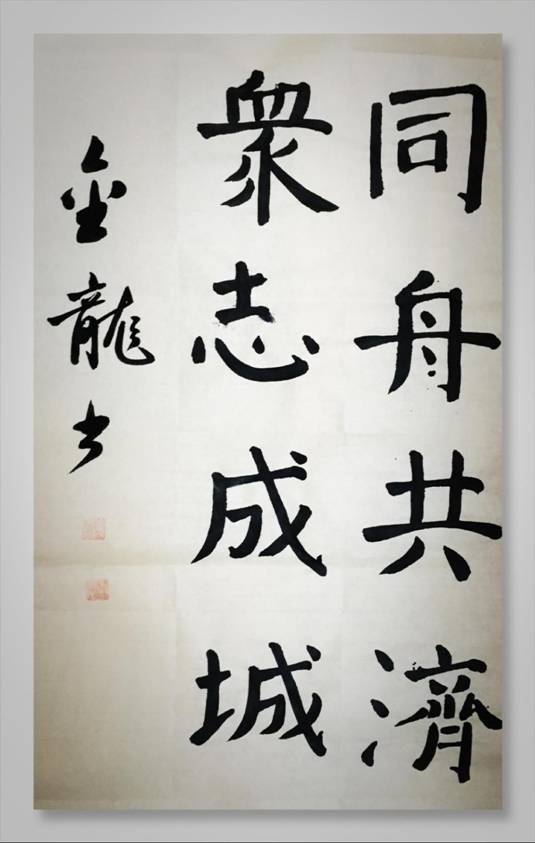 同舟共濟
衆志成城
金龍书